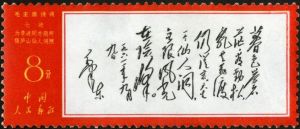 毛主席诗词
七绝
为李进同志题所
摄庐山仙人洞照
8分
中国
人民邮政
暮色苍
茫看劲松
乱云飞渡
仍从容天生
一个仙人洞
无限风光
在险峰
一九六一年九月
毛泽东